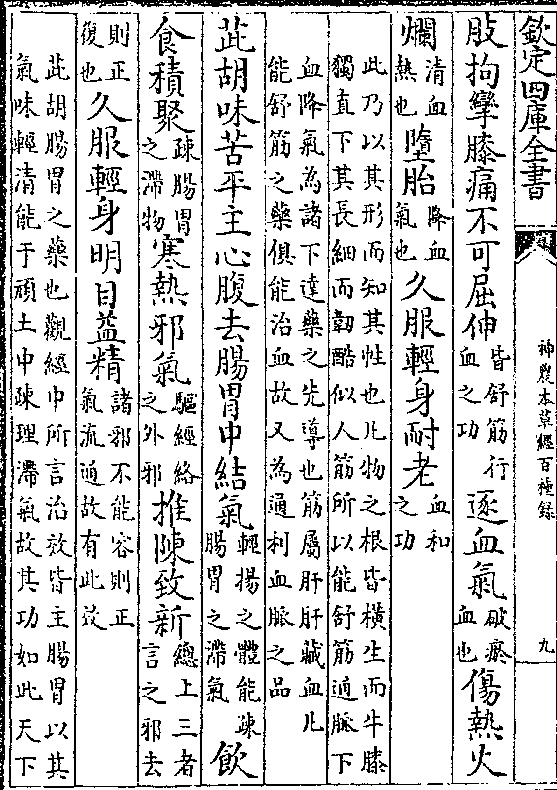 欽定四庫全書
神農本草經百種錄
九
肢拘攣膝痛不可屈伸皆舒筋行血之功逐血氣破瘀血也傷熱火
爛清血熱也墮胎降血氣也久服輕身耐老血和之功
此乃以其形而知其性也凡物之根皆橫生而牛膝
獨直下其長細而韌酷似人筋所以能舒筋通脈下
血降氣為諸下達藥之先導也筋屬肝肝藏血凡
能舒筋之藥俱能治血故又為通利血脈之品
茈胡味苦平主心腹去腸胃中結氣輕揚之體能疎腸胃之滯氣飲
食積聚疎腸胃之滯物寒熱邪氣驅經絡之外邪推陳致新總上三者言之邪去
則正復也久服輕身明目益精諸邪不能容則正氣流通故有此效
茈胡腸胃之藥也觀經中所言治效皆主腸胃以其
氣味輕清能于頑土中疎理滯氣故其功如此天下